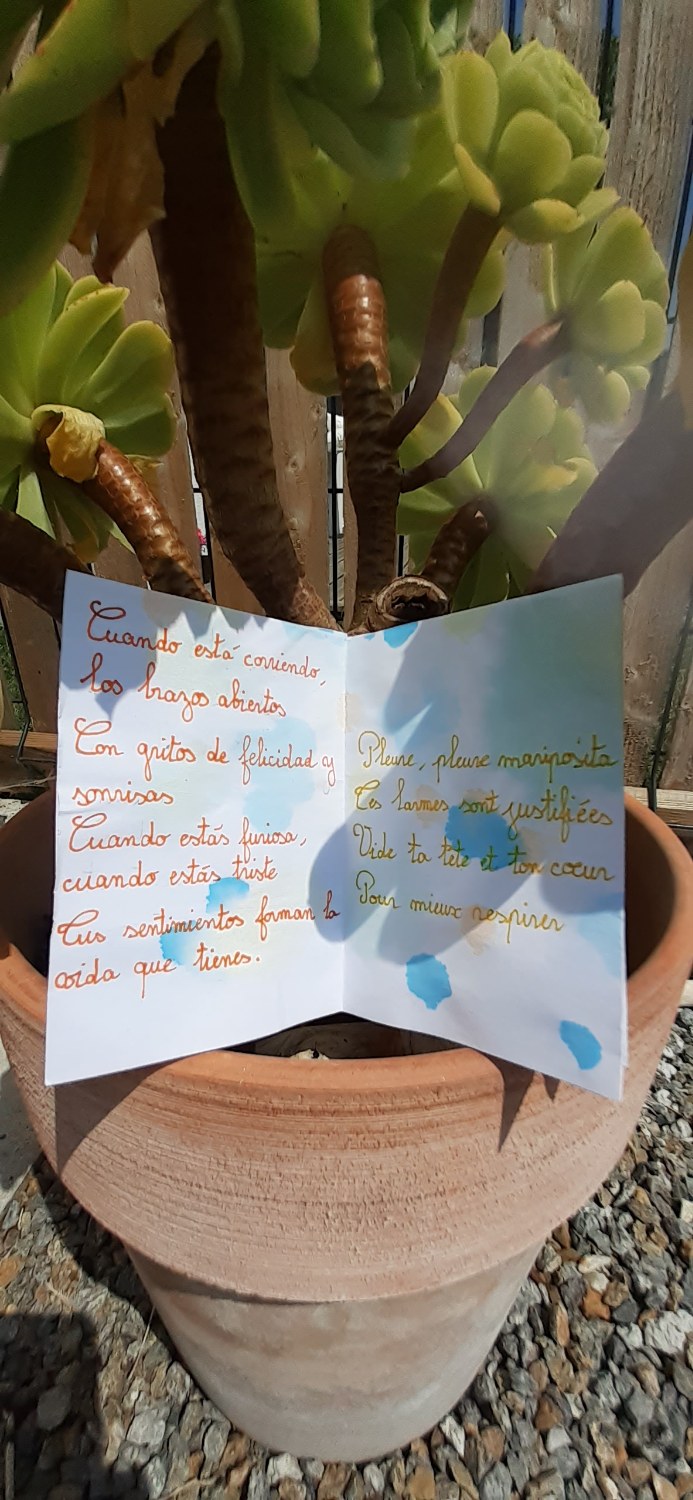 Cuando está corriendo,
los brazos abiertos
Con gritos de felicidad y
sonrisas
Cuando estás furiosa,
cuando estás triste
Tus sentimientos forman la
vida que tienes.
Pleure, pleure mariposita
Tes larmes sont justifiées
Vide ta tete et ton coeur
Pour mieux respirer